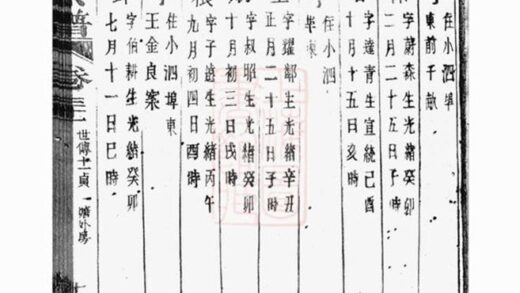 住小泗埠
東前千畝
字蔚森生光緒癸卯
二月二十五日子時
字達青生宣統己酉
十月十五日亥時
住小泗
埠東
字耀鄒生光緒辛丑
正月二十五日子時
字叔昭生光緒癸卯
十月初三日戌時
字子遠生光緒丙午
九月初四日酉時
住小泗埠東
王金良案
字伯耕生光緒癸卯
七月十一日巳時
譜
卷三
世傳十一頁